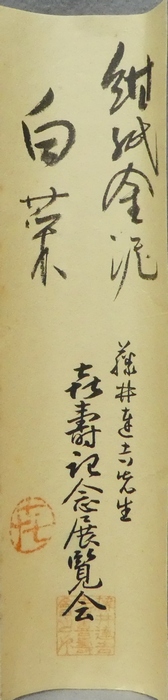 紺紙金泥
白菜
藤井達吉先生
喜寿記念展覧会